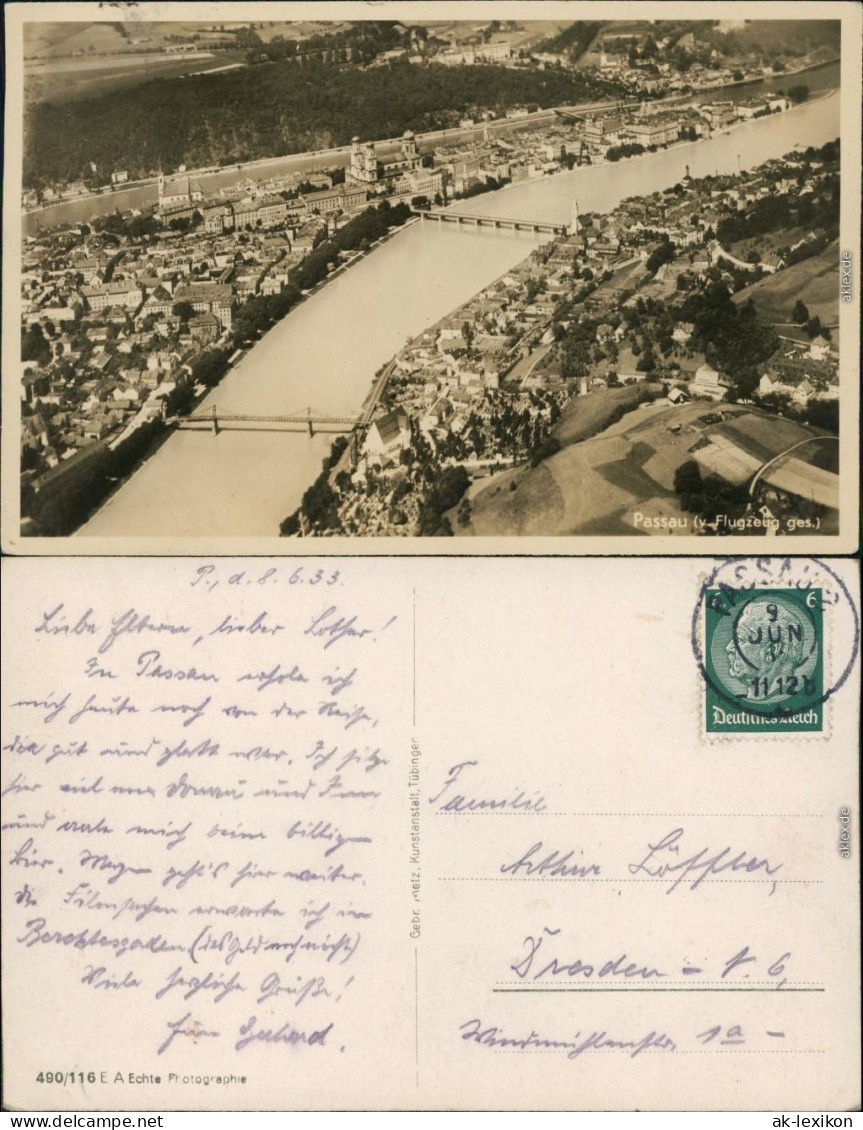 Passau (v. Flugzeug ges.)
P., d. 8. 6. 33.
Liebe Eltern, lieber Lothar!
In Passau erhole ich
mich heute noch von der Reise,
die gut und glatt war. Ich sitze
hier viel an Donau und Inn
und aale mich beim billigen
Bier. Morgen geht's hier weiter.
die Filmsachen erwarte ich in
Berchtesgaden (das Geld noch nicht)
Viele herzliche Grüße!
Euer Gerhard.
490/116 E A Echte Photographie
Gebr. Metz, Kunstanstalt, Tübingen
PASSAU 2
9
JUN
11 12
6
Deutsches Reich
Familie
Arthur Löffler,
Dresden - N. 6,
Windmühlenstr. 1a -
aklex.de
aklex.de
www.ak-lexikon.de
ak-lexikon